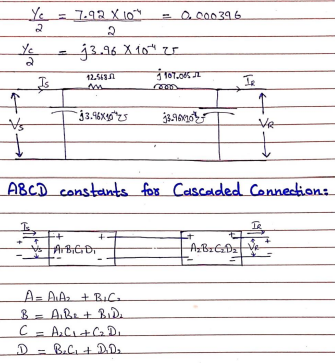 Yc/2 = 7.92 X 10⁻⁴/2 = 0.000396
Yc/2 = j3.96 X 10⁻⁴ ℧
Is 12.563Ω j 107.005Ω IR
Vs j3.96X10⁻⁴℧ j3.96X10⁻⁴℧ VR
ABCD constants for Cascaded Connection:
Is IR
+ + - + + +
Vs A₁B₁C₁D₁ A₂B₂C₂D₂ VR
A = A₁A₂ + B₁C₂
B = A₁B₂ + B₁D₂
C = A₂C₁ + C₂D₁
D = B₂C₁ + D₁D₂